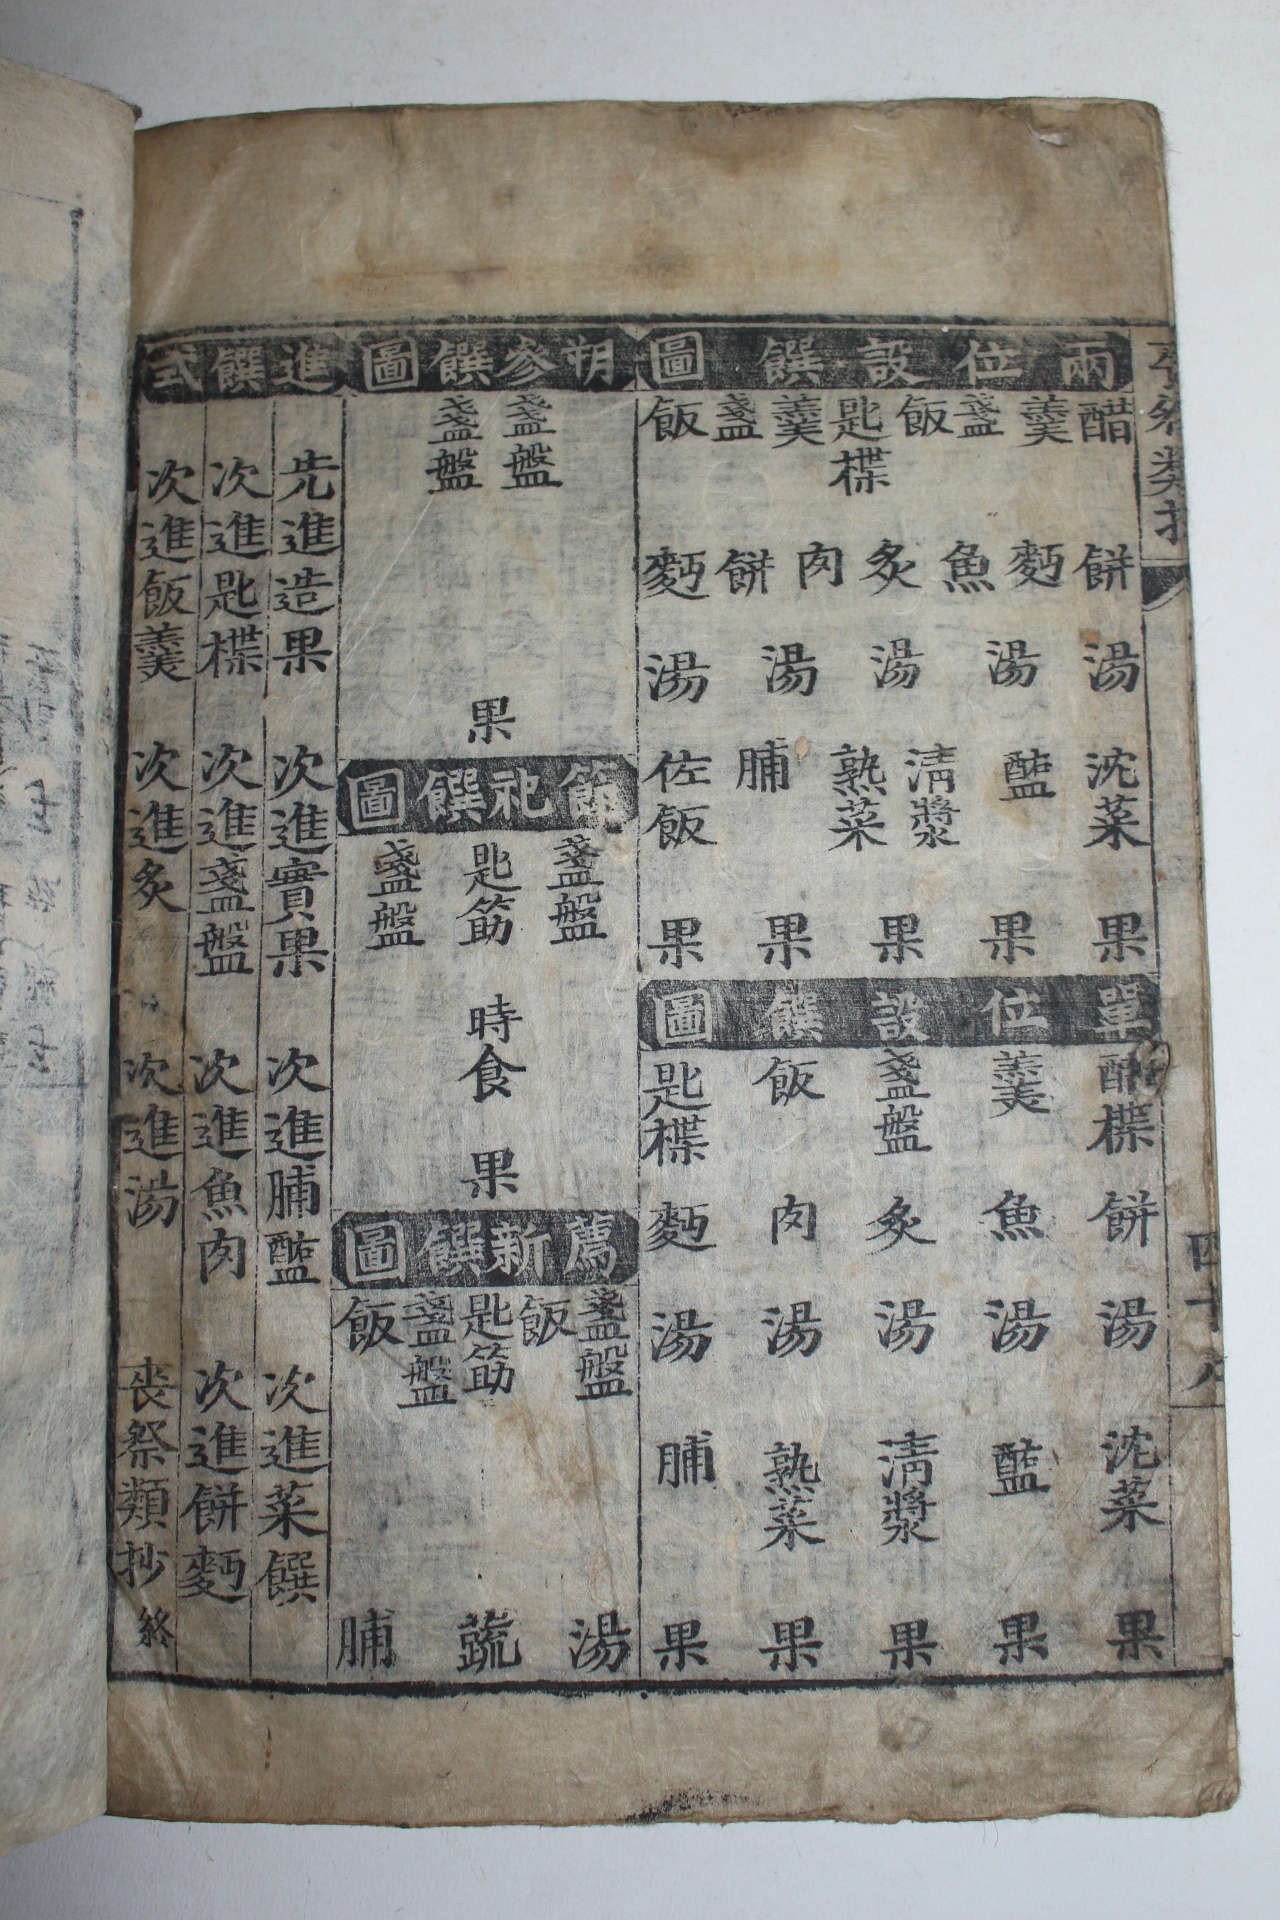 兩位設饌圖
醋 羹 盞 飯 匙楪 羹 盞 飯
餠 麪 魚 炙 肉 餠 麪
湯 湯 湯 湯 湯
沈菜 醢 淸漿 熟菜 脯 佐飯
果 果 果 果 果
單位設饌圖
醋楪 羹 盞盤 飯 匙楪
餠 魚 炙 肉 麪
湯 湯 湯 湯 湯
沈菜 醢 淸漿 熟菜 脯
果 果 果 果 果
朔參饌圖
盞盤 盞盤
果
節祀饌圖
盞盤 匙筯 盞盤
時食
果
薦新饌圖
盞盤 飯 匙筯 盞盤 飯
湯 蔬 脯
進饌式
先進造果 次進實果 次進脯醢 次進菜饌
次進匙楪 次進盞盤 次進魚肉 次進餠麪
次進飯羹 次進炙 次進湯 喪祭類抄 終